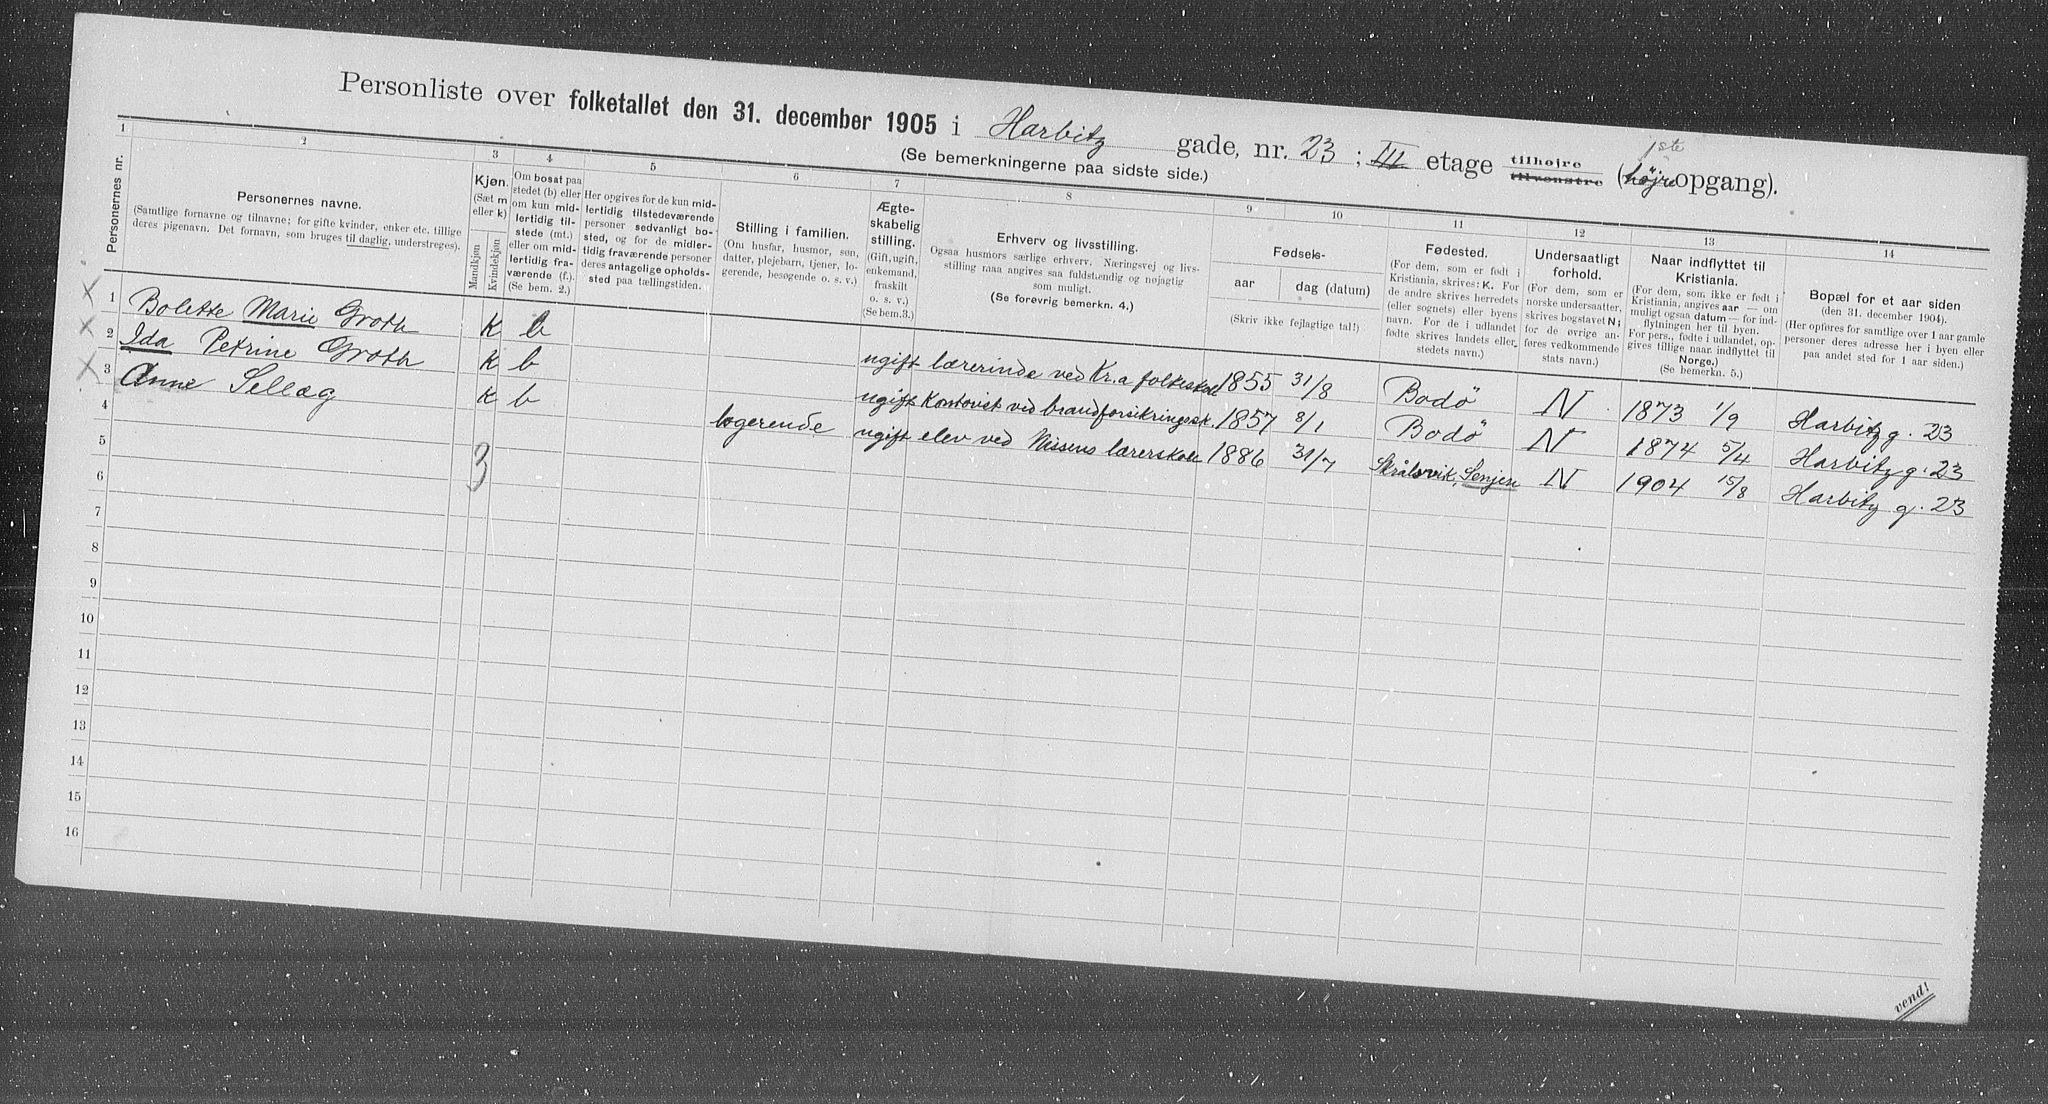 Personliste over folketallet den 31. december 1905 i Harbitz gade, nr. 23 ; III etage tilhøjre tilvenstre (højre 1ste opgang).
(Se bemerkningerne paa sidste side.)
1 2 3 4 5 6 7 8 9 10 11 12 13 14
Personernes nr.
Personernes navne.
(Samtlige fornavne og tilnavne; for gifte kvinder, enker etc. tillige
deres pigenavn. Det fornavn, som bruges til daglig, understreges).
Kjøn.
(Sæt m
eller k)
Mandkjøn
Kvindekjøn
Om bosat paa
stedet (b) eller
om kun mid-
lertidig til-
stede (mt.)
eller om mid-
lertidig fra-
værende (f.).
(Se bem. 2.)
Her opgives for de kun mid-
lertidig tilstedeværende
personer sedvanligt bo-
sted, og for de midler-
tidig fraværende personer
deres antagelige opholds-
sted paa tællingstiden.
Stilling i familien.
(Om husfar, husmor, søn,
datter, plejebarn, tjener, lo-
gerende, besøgende o. s. v.)
Ægte-
skabelig
stilling.
(Gift, ugift,
enkemand,
fraskilt
o. s. v.)
(Se bem.3.)
Erhverv og livsstilling.
Ogsaa husmors særlige erhverv. Næringsvej og livs-
stilling maa angives saa fuldstændig og nøjagtig
som muligt.
(Se forøvrig bemerkn. 4.)
Fødsels-
aar
dag (datum)
(Skriv ikke fejlagtige tal!)
Fødested.
(For dem, som er født i
Kristiania, skrives: K. For
de andre skrives herredets
(eller sognets) eller byens
navn. For de i udlandet
fødte skrives landets eller
stedets navn.)
Undersaatligt
forhold.
(For dem, som er
norske undersaatter,
skrives bogstavet N;
for de øvrige an-
føres vedkommende
stats navn.)
Naar indflyttet til
Kristiania.
(For dem, som ikke er født i
Kristiania, angives aar — om
muligt ogsaa datum — for ind-
flytningen her til byen.
For pers., fødte i udlandet, op-
gives tillige naar indflyttet til
Norge.)
(Se bemerkn. 5.)
Bopæl for et aar siden
(den 31. december 1904).
(Her opføres for samtlige over 1 aar gamle
personer deres adresse her i byen eller
paa andet sted for 1 aar siden.)
X 1 Bolette Marie Groth K b ugift lærerinde ved Kr.a folkeskole 1855 31/8 Bodø N 1873 1/9 Harbitz g. 23
X 2 Ida Petrine Groth K b ugift Kontorist ved brandforsikringssk. 1857 8/1 Bodø N 1874 5/4 Harbitz g. 23
X 3 Anne Sellæg K b logerende ugift elev ved Nissens lærerskole 1886 31/7 Senjen N 1904 15/8 Harbitz g. 23
4
5 3
6
7
8
9
10
11
12
13
14
15
16
vend!